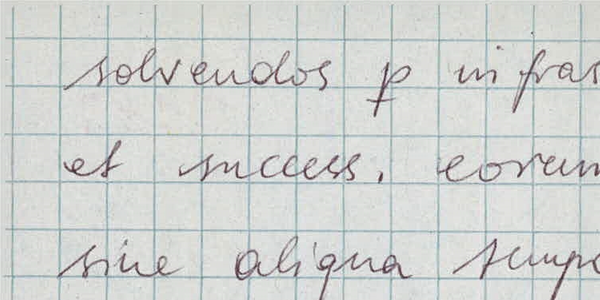 solvendos p infras
et success. eorum
sine aliqua tempo